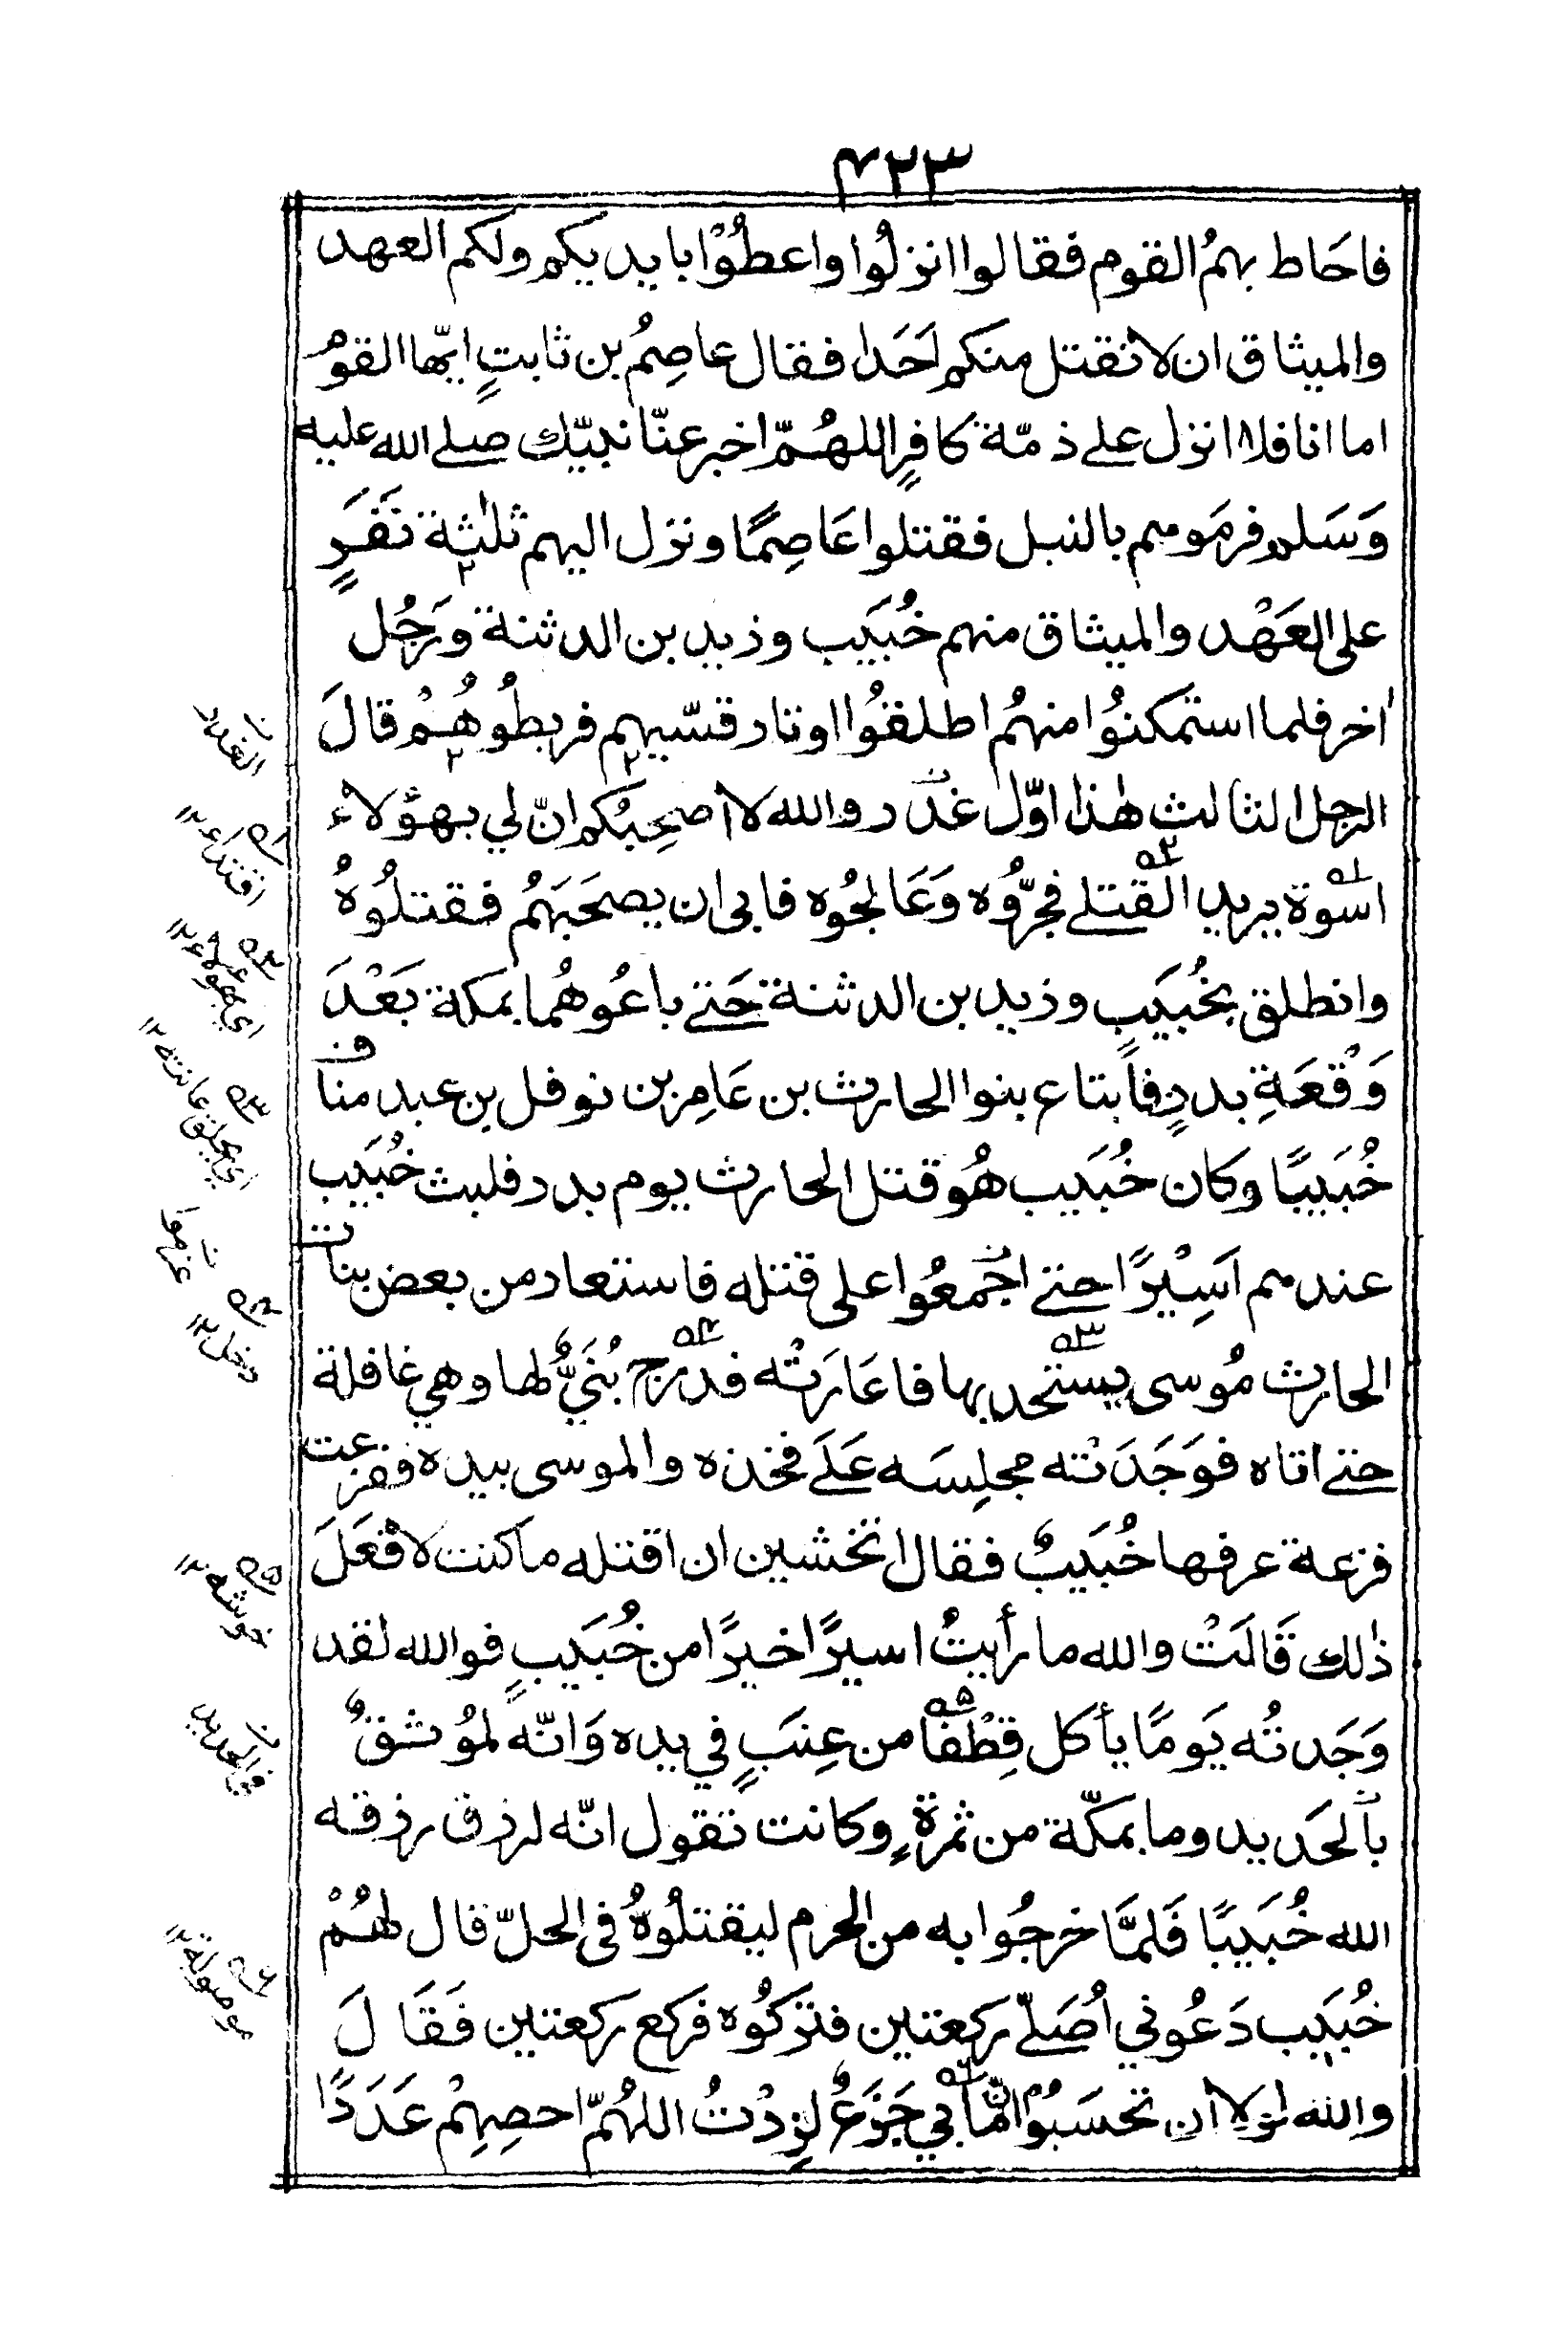 ۴۲۳
فاحَاط بهمُ القوم فقالوا انزلُوا واعطُوْا بايديكم ولكم العهد
والميثاق ان لا نقتل منكم اَحَدا فقال عاصِمُ بن ثابتٍ ايّها القومُ
اما انا فلا انزل علے ذمّة كافرٍ اللهُمّ اخبر عنّا نبيّك صلے الله عليه
وَسَلم فرمَوهم بالنبل فقتلوا عَاصِمًا ونزل اليهم ثلٰثة نَفَرٍ
على العَهْد والميثاق منهم خُبَيب وزيد بن الدثنة ورَجُل
اٰخر فلما استمكنُوا منهُم اطلقُوا اوتار قسّيهم فربطُوهُمْ قالَ
الرجل الثالث هٰذا اوّل غدر والله لا اصحبُكم انّ لي بهؤلاء
اسوة يريد القتلے فجرُّوه وَعَالجُوه فابى ان يصحَبَهُم فقتلُوهُ
وانطلق بخُبَيبٍ وزيد بن الدثنة حَتے باعُوهُما بمكة بَعْدَ
وَقْعَةِ بدرٍ فابتاع بنوا الحارث بن عَامِر بن نوفل بن عبد مناف
خُبَيبًا وكان خُبَيب هُو قتل الحارث يوم بدر فلبث خُبَيب
عندهم اَسِيْرًا حتے اجمعُوا على قتله فاستعار من بعض بنات
الحارث مُوسى يستحد بها فاعَارَتْه فدرج بُنَيٌّ لها وهي غافلة
حتے اتاه فوَجَدَتْه مجلِسَه عَلَے فخذه والموسى بيده ففزعت
فزعة عرفها خُبَيبٌ فقال اتخشين ان اقتله ما كنت لافْعَلَ
ذٰلك قَالَتْ والله ما رأيتُ اسيرًا خيرًا من خُبَيبٍ فوالله لقد
وَجَدتُه يَومًا يأكل قِطْفًا من عِنَبٍ في يده وَانّه لمُوثقٌ
بالحَديد وما بمكّة من ثمرةٍ وكانت تقول انّه لرزق رزقه
الله خُبَيبًا فَلمَّا خرجُوا به من الحرم ليقتلُوهُ فى الحلّ قال لهُمْ
خُبَيب دَعُوني اُصَلّے ركعتين فتركُوه فركع ركعتين فَقَالَ
والله لولا ان تحسَبُوا انّما بي جَزَعٌ لزِدْتُ اللهُمّ احصِهِمْ عَدَدًا
ن
الغدر
۱ه
اقتداء ۱۲
۲ه
۳ه
۱۲
ن
عزموا
۴ه
دخل ۱۲
۵ه
خوشه ۱۲
ن
في الحديد
۶ه
موصولة ۱۲